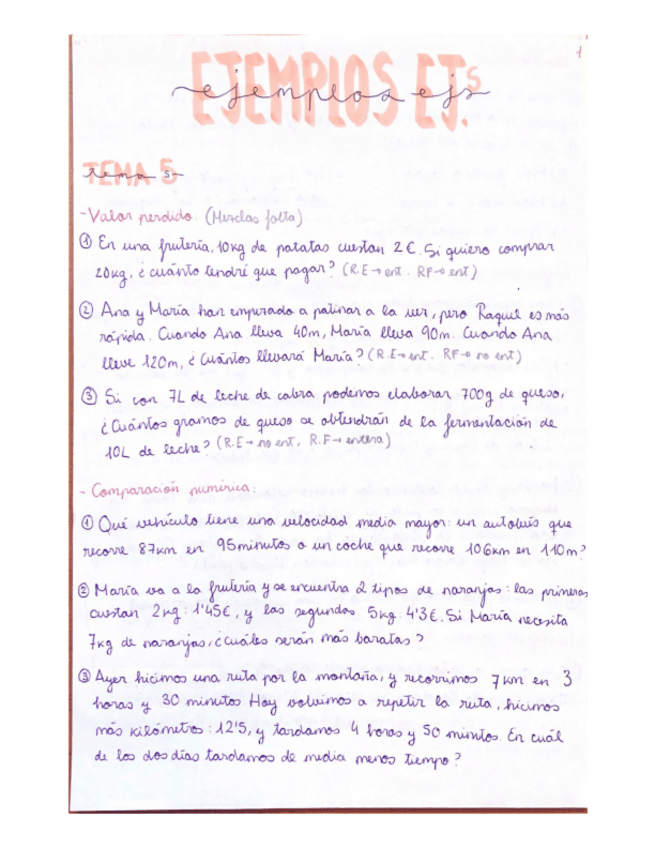 1
EJEMPLOS EJs.
ejemplos ejs
TEMA 5
tema 5
- Valor perdido. (Mezclas falta)
① En una frutería, 10kg de patatas cuestan 2€. Si quiero comprar
20kg, ¿cuánto tendré que pagar? (R.E→ent. RF→ent)
② Ana y María han empezado a patinar a la vez, pero Raquel es más
rápida. Cuando Ana lleva 40m, María lleva 90m. Cuando Ana
lleve 120m, ¿Cuántos llevará María? (R.E→ent. RF→ no ent)
③ Si con 7L de leche de cabra podemos elaborar 700g de queso,
¿Cuántos gramos de queso se obtendrán de la fermentación de
10L de leche? (R.E→ no ent, R.F→ entera)
- Comparación numérica:
① Qué vehículo tiene una velocidad media mayor: un autobús que
recorre 87km en 95minutos o un coche que recorre 106km en 110m?
② María va a la frutería y se encuentra 2 tipos de naranjas: las primeras
cuestan 2kg: 1'45€, y las segundas 5kg: 4'3€. Si María necesita
7kg de naranjas, ¿cuáles serán más baratas?
③ Ayer hicimos una ruta por la montaña, y recorrimos 7km en 3
horas y 30 minutos. Hoy volvimos a repetir la ruta, hicimos
más kilómetros: 12'5, y tardamos 4 horas y 50 minutos. En cuál
de los dos días tardamos de media menos tiempo?